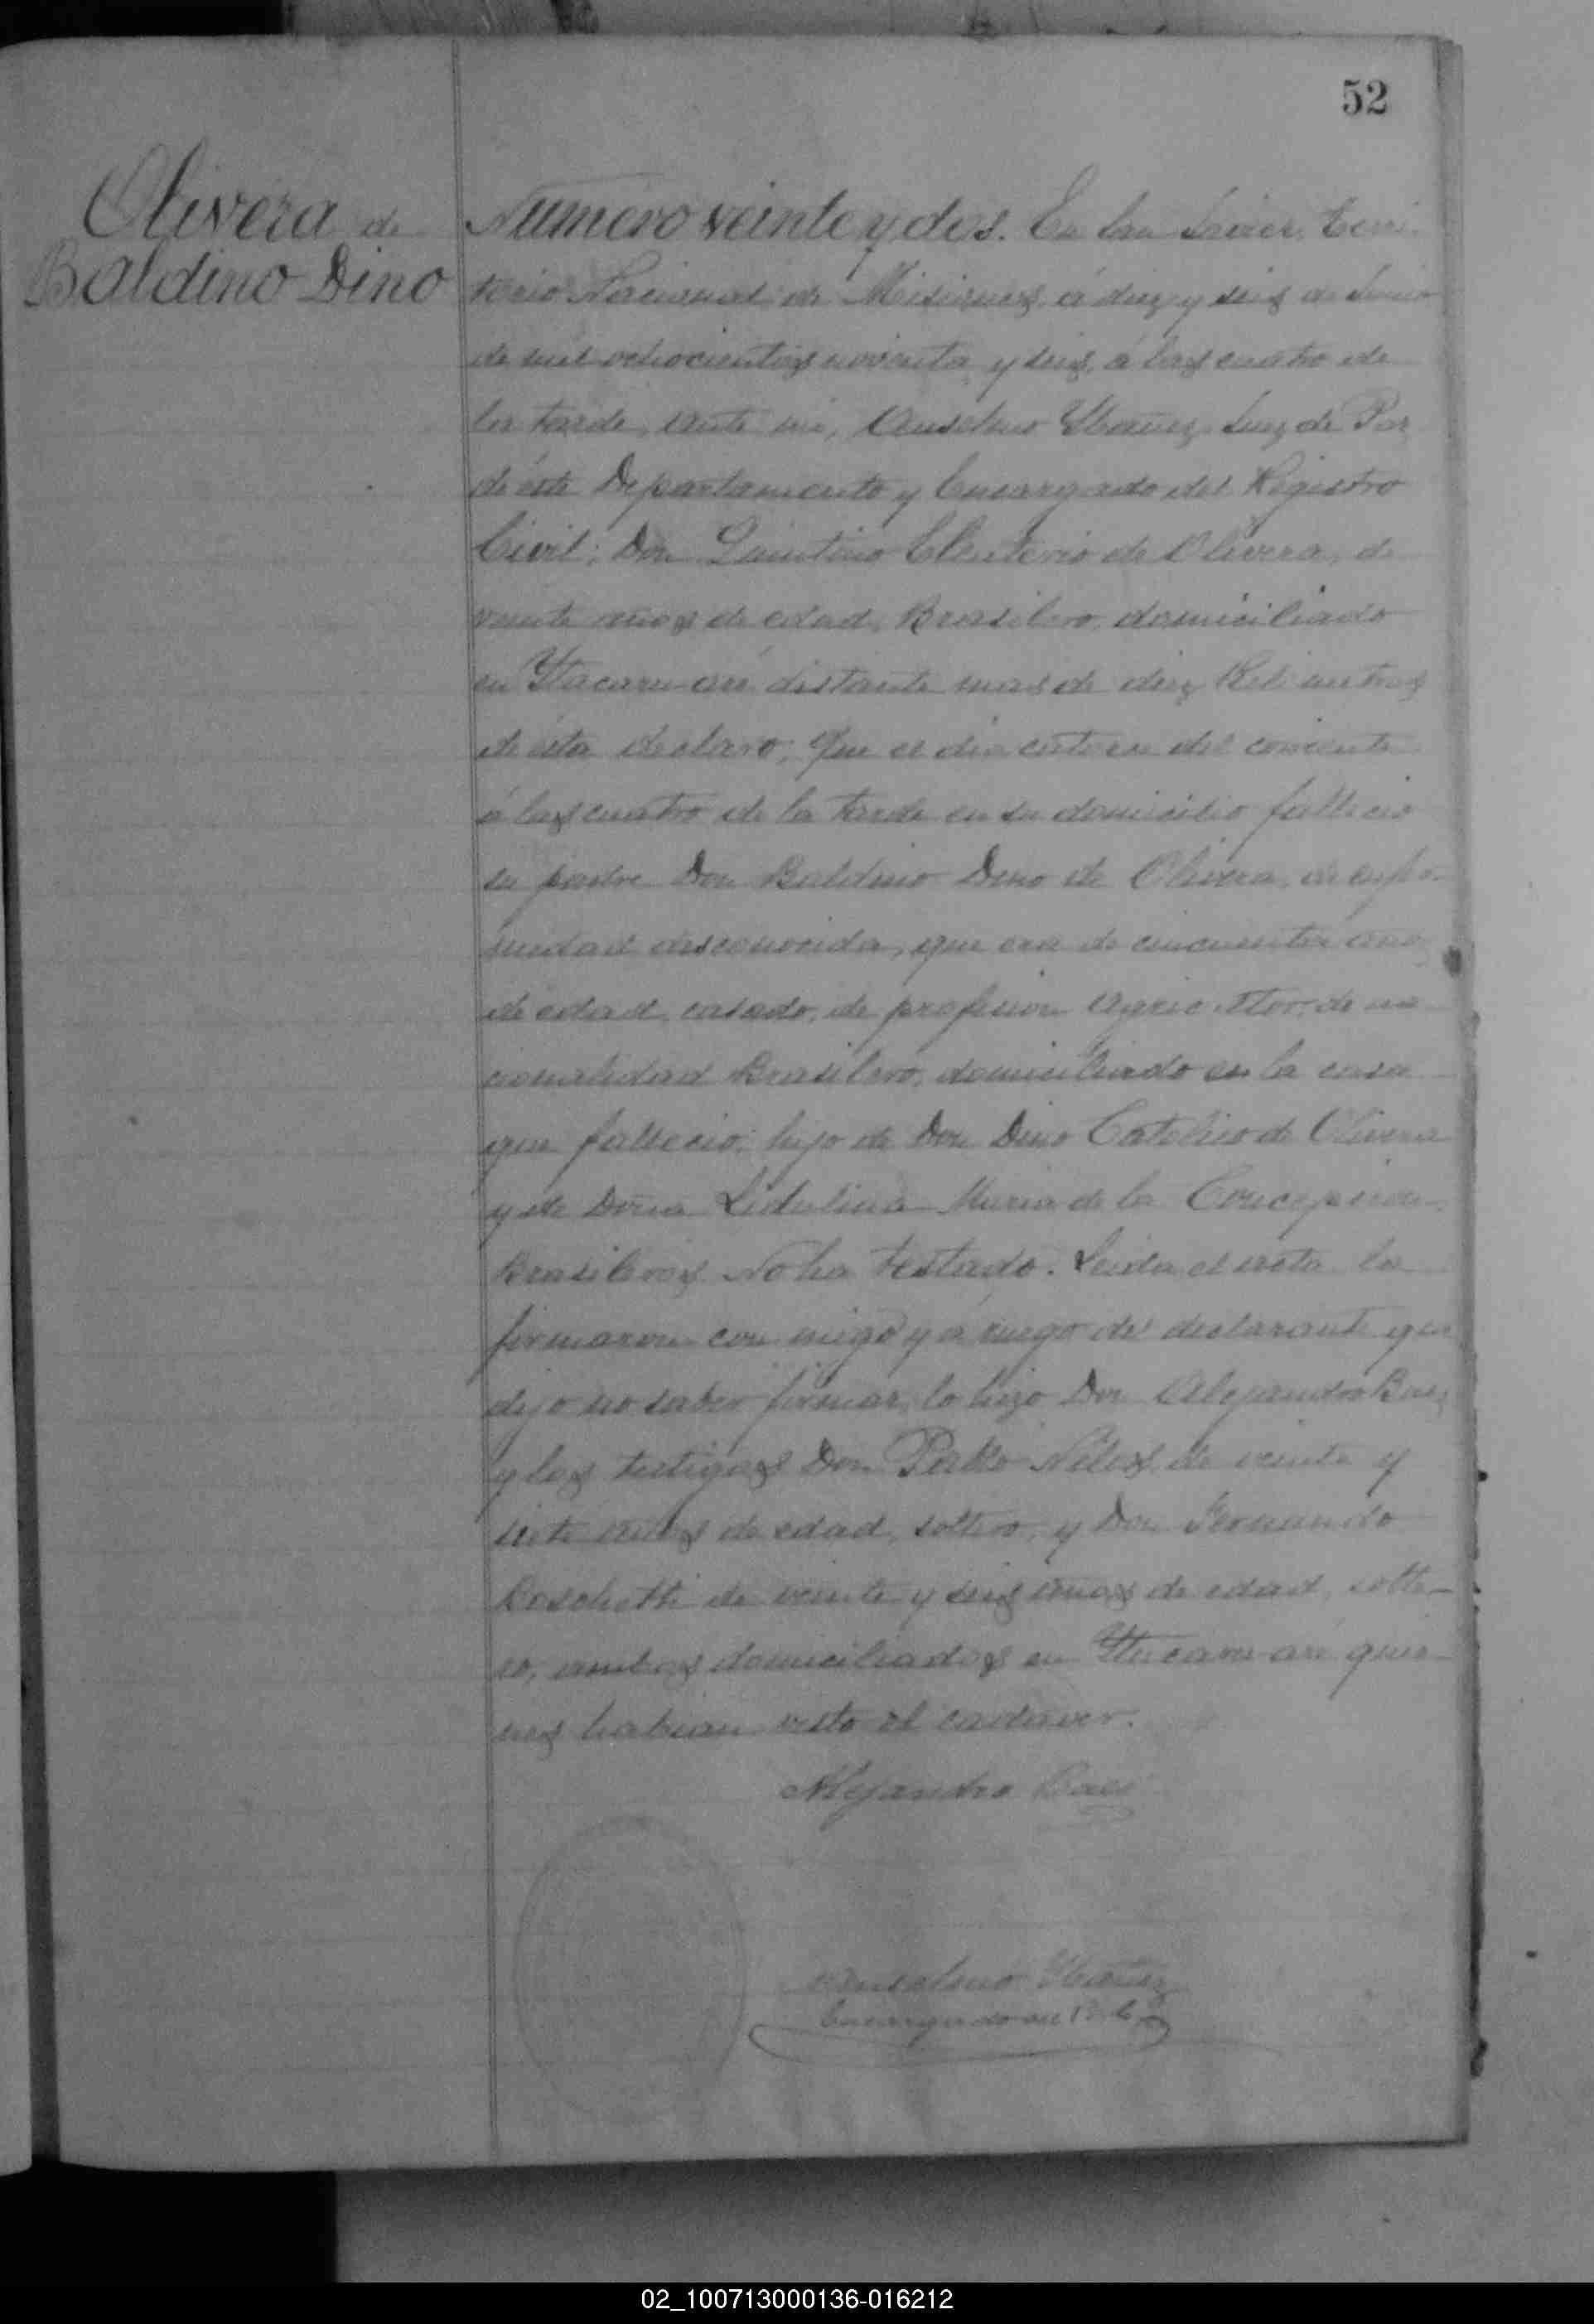 52
Olivera de
Baldino Dino
Numero veinte y dos. En San Javier, Terri-
torio Nacional de Misiones, á diez y seis de Junio
de mil ochocientos noventa y seis, á las cuatro de
la tarde, ante mi, Anselmo Ybañez Juez de Paz
de éste Departamento y Encargado del Registro
Civil; Don Quintino Eleuterio de Olivera, de
veinte años de edad, Brasilero, domiciliado
en Ytacaru-aré distante mas de diez Kilometros
de ésta declaro; Que el dia catorce del corriente
á las cuatro de la tarde en su domicilio fallecio
su padre Don Baldino Dino de Olivera, de enfer-
medad desconocida, que era de cincuenta años
de edad, casado, de profesion Agricultor, de na-
cionalidad Brasilero, domiciliado en la casa
que fallecio; hijo de Don Dino Catolico de Olivera
y de Doña Lidulina Maria de la Concepcion
Brasileros No ha testado. Leida el acta la
firmaron con migo y á ruego del declarante que
dijo no saber firmar, lo hizo Don Alejandro Baez
y los testigos Don Pablo de veinte y
siete años de edad, soltero, y Don Fernando
Boschetti de veinte y seis años de edad, solte-
ro, ambos domiciliados en Ytacaru-aré quie-
nes habian visto el cadaver.
Alejandro Baez
Anselmo Ybañez
Encargado del R. C.
02_100713000136-016212